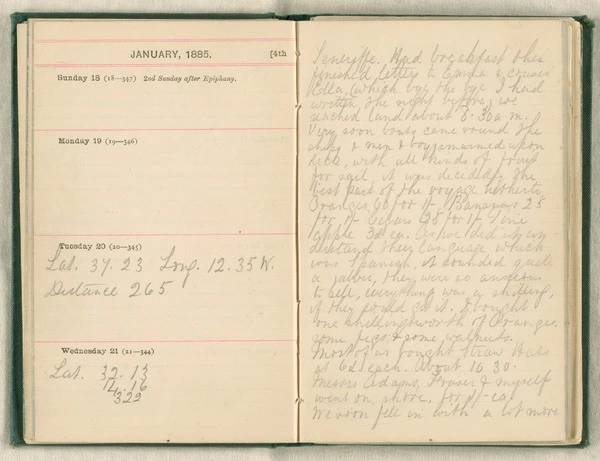 JANUARY, 1885. [4th
Sunday 18 (18—347) 2nd Sunday after Epiphany.
Monday 19 (19—346)
Tuesday 20 (20—345)
Lat. 37. 23 Long. 12. 35 W.
Distance 265
Wednesday 21 (21—344)
Lat. 32. 13
14. 16
322
Teneriffe. Had breakfast then
finished letters to Emma & cousin
Ella, (which by the bye I had
written the night before) we
reached land about 8.30 a m.
Very soon boats came round the
ship & men & boys swarmed upon
deck, with all kinds of fruit
for sale, it was decidedly the
best part of the voyage hitherto
Oranges 60 for 1/- Bananas 25
for 1/- Cigars 25 for 1/- Pine
apple 3d ea. As we did not un-
derstand their language which
was Spanish, it sounded quite
a jabber, they were so anxious
to sell, everything was a shilling,
if they could get it. I bought
one shillingsworth of Oranges,
some figs & some walnuts.
Most of us bought Straw Hats
at 6d each. About 10.30.
Messrs Adams, Fraser & myself
went on shore, for 1/- ea
We soon fell in with a lot more